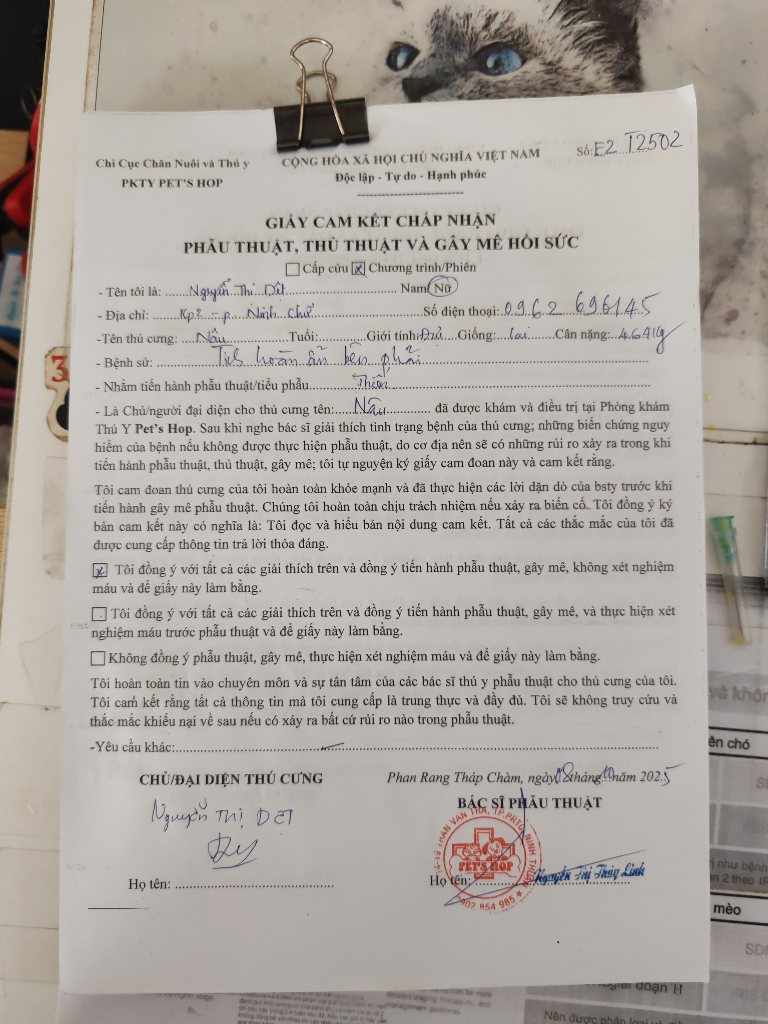 Chi Cục Chăn Nuôi và Thú y
PKTY PET'S HOP
CỘNG HÒA XÃ HỘI CHỦ NGHĨA VIỆT NAM
Độc lập - Tự do - Hạnh phúc
Số: E2 T2502
GIẤY CAM KẾT CHẤP NHẬN
PHẪU THUẬT, THỦ THUẬT VÀ GÂY MÊ HỒI SỨC
Cấp cứu Chương trình/Phiên
- Tên tôi là: Nguyễn Thị Dệt Nam/ Nữ
- Địa chỉ: Kp2 - p. Ninh chữ Số điện thoại: 0962 696145
-Tên thú cưng: Nâu Tuổi: Giới tính: Đực Giống: lai Cân nặng: 4.6 Kg
- Bệnh sử: Tinh hoàn ẩn bên phải
- Nhằm tiến hành phẫu thuật/tiểu phẫu Thiến
- Là Chủ/người đại diện cho thú cưng tên: Nâu đã được khám và điều trị tại Phòng khám
Thú Y Pet's Hop. Sau khi nghe bác sĩ giải thích tình trạng bệnh của thú cưng; những biến chứng nguy
hiểm của bệnh nếu không được thực hiện phẫu thuật, do cơ địa nên sẽ có những rủi ro xảy ra trong khi
tiến hành phẫu thuật, thủ thuật, gây mê; tôi tự nguyện ký giấy cam đoan này và cam kết rằng.
Tôi cam đoan thú cưng của tôi hoàn toàn khỏe mạnh và đã thực hiện các lời dặn dò của bsty trước khi
tiến hành gây mê phẫu thuật. Chúng tôi hoàn toàn chịu trách nhiệm nếu xảy ra biến cố. Tôi đồng ý ký
bản cam kết này có nghĩa là: Tôi đọc và hiểu bản nội dung cam kết. Tất cả các thắc mắc của tôi đã
được cung cấp thông tin trả lời thỏa đáng.
Tôi đồng ý với tất cả các giải thích trên và đồng ý tiến hành phẫu thuật, gây mê, không xét nghiệm
máu và để giấy này làm bằng.
Tôi đồng ý với tất cả các giải thích trên và đồng ý tiến hành phẫu thuật, gây mê, và thực hiện xét
nghiệm máu trước phẫu thuật và để giấy này làm bằng.
Không đồng ý phẫu thuật, gây mê, thực hiện xét nghiệm máu và để giấy này làm bằng.
Tôi hoàn toàn tin vào chuyên môn và sự tân tâm của các bác sĩ thú y phẫu thuật cho thú cưng của tôi.
Tôi cam kết rằng tất cả thông tin mà tôi cung cấp là trung thực và đầy đủ. Tôi sẽ không truy cứu và
thắc mắc khiếu nại về sau nếu có xảy ra bất cứ rủi ro nào trong phẫu thuật.
-Yêu cầu khác:
CHỦ/ĐẠI DIỆN THÚ CƯNG
Nguyễn Thị DỆT
Họ tên:
Phan Rang Tháp Chàm, ngày 08 tháng 10 năm 2025
BÁC SĨ PHẪU THUẬT
TRẦN VĂN TRÀ, TP.PRTC, NINH THUẬN
PET'S HOP
402 854 985
Họ tên: Nguyễn Thị Thùy Linh
ên chó
mèo